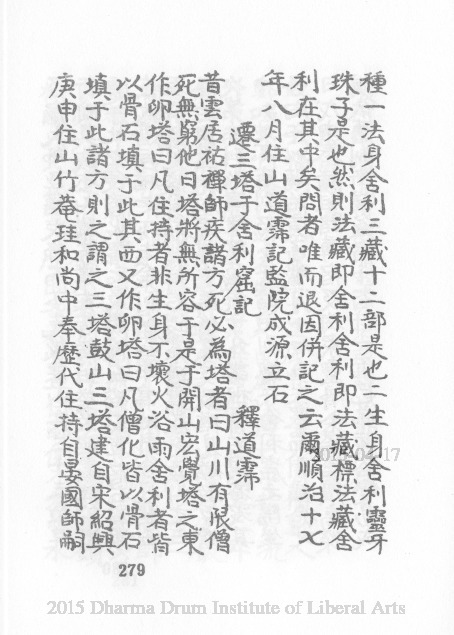 種一法身舍利三藏十二部是也二生身舍利靈牙
珠子是也然則法藏即舍利舍利即法藏標法藏舍
利在其中矣問者唯而退因併記之云爾順治十七
年八月住山道霈記監院成源立石
遷三塔于舍利窟記 釋道霈
昔雲居祐禪師疾諸方死必為塔者曰山川有限僧
死無窮他日塔將無所容于是于開山宏覺塔之東
作卵塔曰凡住持者非生身不壞火浴雨舍利者皆
以骨石填于此其西又作卵塔曰凡僧化皆以骨石
填于此諸方則之謂之三塔鼓山三塔建自宋紹興
庚申住山竹菴珪和尚中奉歷代住持自晏國師嗣
279
2015 Dharma Drum Institute of Liberal Arts